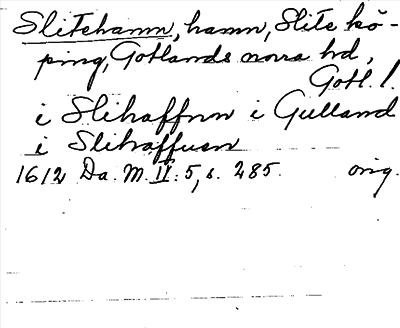 Slitehamn, hamn, Slite kö-
ping, Gotlands norra hd,
Gotl. l.
i Slihaffnn i Gulland
i Slihaffuen
1612 Da. M. II: 5, s. 285. orig.